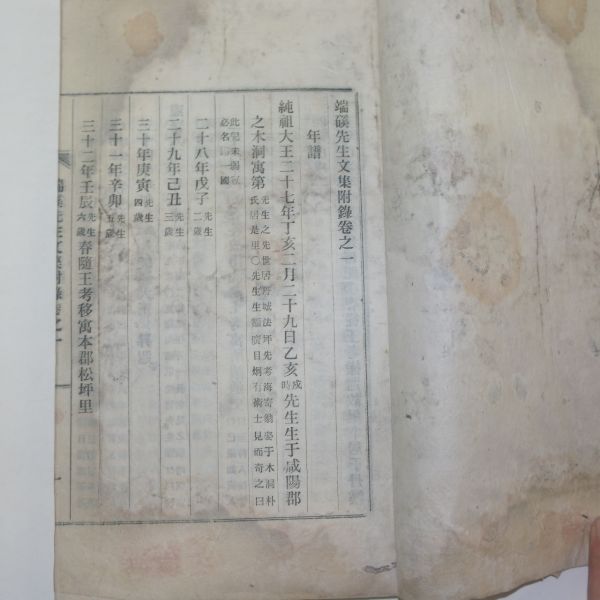 端磎先生文集附錄卷之一
年譜
純祖大王二十七年丁亥二月二十九日乙亥戌時先生生于咸陽郡
之木洞寓第先生之先世居 城法坪先考海寄翁娶于木洞朴
氏居是里○先生生額廣目炯有術士見而奇之曰
此兒未弱
必名 國
二十八年戊子先生二歲
二十九年己丑先生三歲
三十年庚寅先生四歲
三十一年辛卯先生五歲
三十二年壬辰先生六歲春隨王考移寓本郡松坪里
端磎先生文集附錄卷之一